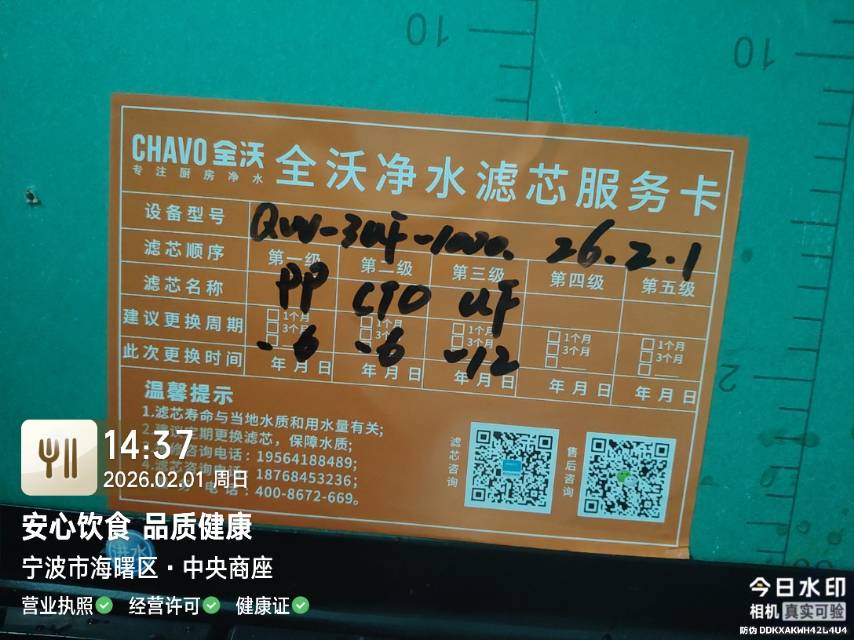 10
10
CHAVO 全沃
专注厨房净水
全沃净水滤芯服务卡
设备型号 QW-3UF-1000. 26.2.1
滤芯顺序 第一级 第二级 第三级 第四级 第五级
滤芯名称 PP CTO UF
建议更换周期 1个月 1个月 1个月 1个月 1个月
3个月 3个月 3个月 3个月
-6 -6 -12
此次更换时间 年月日 年月日 年月日 年月日 年月日
2
温馨提示
1.滤芯寿命与当地水质和用水量有关;
定期更换滤芯,保障水质;
咨询电话:19564188489;
滤芯咨询电话:18768453236;
电话:400-8672-669。
滤芯咨询
售后咨询
14:37
2026.02.01 周日
安心饮食 品质健康
进水
宁波市海曙区·中央商座
营业执照 经营许可 健康证
今日水印
相机 真实可验
防伪 DDKXAKWH42L4U4